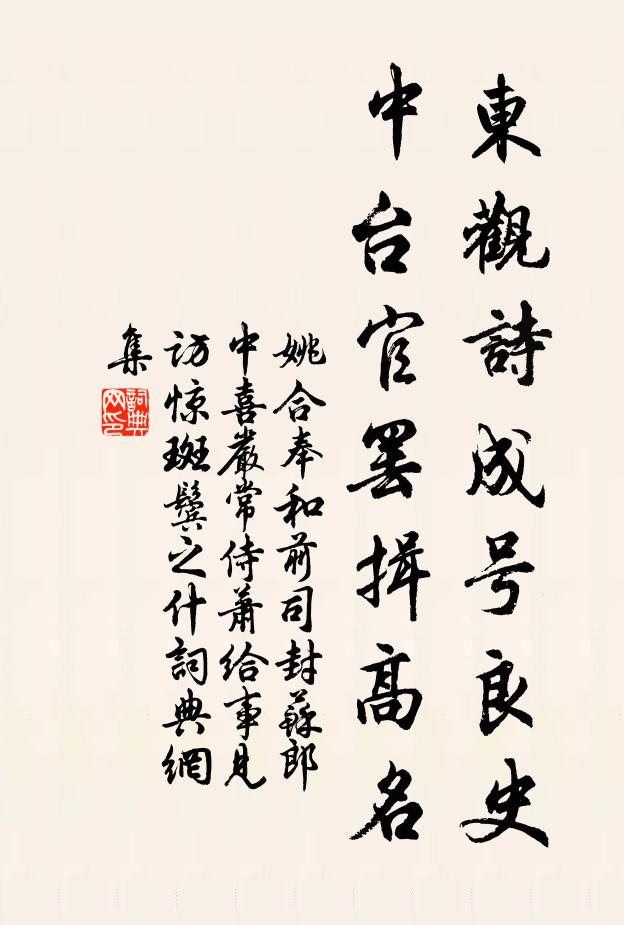 東觀詩成号良史
中台官罢揖高名
姚合奉和前司封蘇郎
中喜嚴常侍蕭給事見
訪惊斑鬓之什詞典網
集
詞典
网印